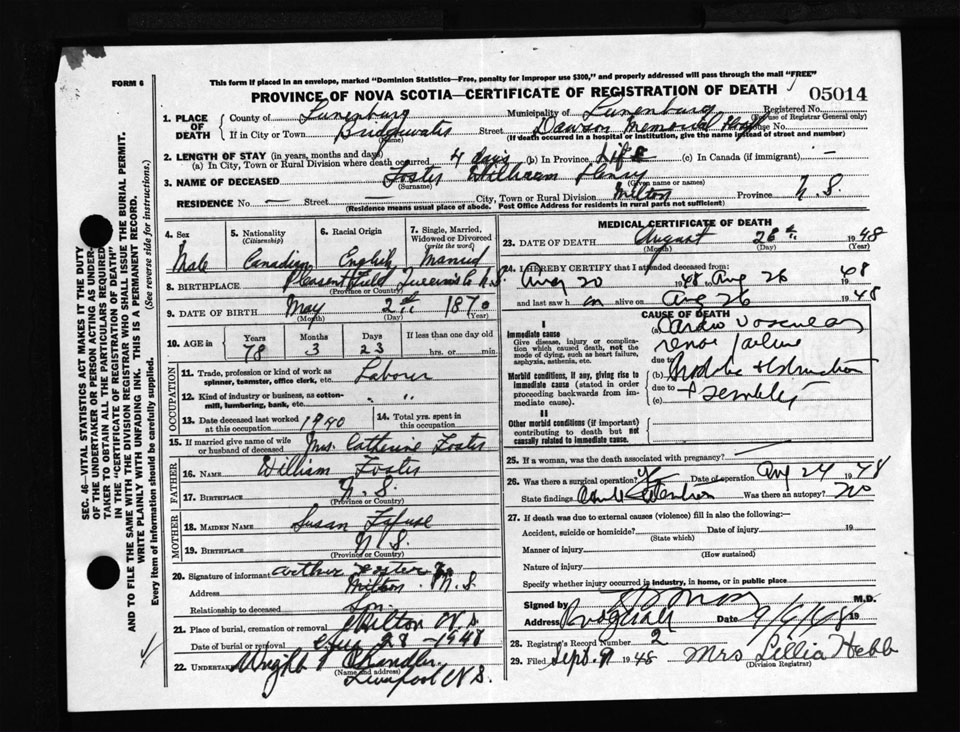 This form if placed in an envelope, marked "Dominion Statistics—Free, penalty for improper use $300," and properly addressed will pass through the mail "FREE"
FORM 6
PROVINCE OF NOVA SCOTIA—CERTIFICATE OF REGISTRATION OF DEATH
05014
SEC. 46—VITAL STATISTICS ACT MAKES IT THE DUTY
OF THE UNDERTAKER OR PERSON ACTING AS UNDER-
TAKER TO OBTAIN ALL THE PARTICULARS REQUIRED
IN THE "CERTIFICATE OF REGISTRATION OF DEATH"
AND TO FILE THE SAME WITH THE DIVISION REGISTRAR WHO SHALL ISSUE THE BURIAL PERMIT.
WRITE PLAINLY WITH UNFADING INK. THIS IS A PERMANENT RECORD.
Every item of information should be carefully supplied. (See reverse side for instructions.)
1. PLACE OF DEATH
County of Lunenburg Municipality of Lunenburg Registered No.
(For use of Registrar General only)
If in City or Town Bridgewater Street Dawson Memorial Hosp House No.
(Name) (If death occurred in a hospital or institution, give the name instead of street and number)
2. LENGTH OF STAY (in years, months and days)
(a) In City, Town or Rural Division where death occurred 4 days (b) In Province Life (c) In Canada (if immigrant) —
3. NAME OF DECEASED Foster William Henry
(Surname) (Given name or names)
RESIDENCE No. — Street — City, Town or Rural Division Milton Province N.S.
(Residence means usual place of abode. Post Office Address for residents in rural parts not sufficient)
4. Sex Male
5. Nationality (Citizenship) Canadian
6. Racial Origin English
7. Single, Married, Widowed or Divorced (write the word) Married
8. BIRTHPLACE Pleasant Field Queen's Co N.S.
(Province or Country)
9. DATE OF BIRTH May 2nd 1870
(Month) (Day) (Year)
10. AGE in Years Months Days If less than one day old
78 3 23 hrs. or min.
OCCUPATION
11. Trade, profession or kind of work as spinner, teamster, office clerk, etc. Laborer
12. Kind of industry or business, as cotton-mill, lumbering, bank, etc. " "
13. Date deceased last worked at this occupation 1940
14. Total yrs. spent in this occupation
15. If married give name of wife or husband of deceased Mrs. Catherine Foster
FATHER
16. NAME William Foster
17. BIRTHPLACE N.S.
(Province or Country)
MOTHER
18. MAIDEN NAME Susan
19. BIRTHPLACE N.S.
(Province or Country)
20. Signature of informant Arthur Foster
Address Milton N.S.
Relationship to deceased Son
21. Place of burial, cremation or removal Milton N.S.
Date of burial or removal Aug 28 - 1948
22. UNDERTAKER Wright Chandler
(Name and address)
Liverpool N.S.
MEDICAL CERTIFICATE OF DEATH
23. DATE OF DEATH August 26th 1948
(Month) (Day) (Year)
24. I HEREBY CERTIFY that I attended deceased from:
Aug 20 1948 to Aug 26 1948
and last saw h im alive on Aug 26 1948
CAUSE OF DEATH
I
Immediate cause
Give disease, injury or complica-
tion which caused death, not the
mode of dying, such as heart failure,
asphyxia, asthenia, etc.
(a) Cardio Vascular
renal failure
due to
Morbid conditions, if any, giving rise to
immediate cause (stated in order
proceeding backwards from im-
mediate cause).
(b) obstruction
due to
(c)
II
Other morbid conditions (if important)
contributing to death but not
causally related to immediate cause.
25. If a woman, was the death associated with pregnancy?
26. Was there a surgical operation? Date of operation Aug 24 1948
State findings Was there an autopsy? no
27. If death was due to external causes (violence) fill in also the following:—
Accident, suicide or homicide? Date of injury 19
(State which)
Manner of injury
(How sustained)
Nature of injury
Specify whether injury occurred in industry, in home, or in public place
Signed by M.D.
Address Date 19
28. Registrar's Record Number 2
29. Filed Sept. 9 1948 Mrs Lillia Hebb
(Division Registrar)